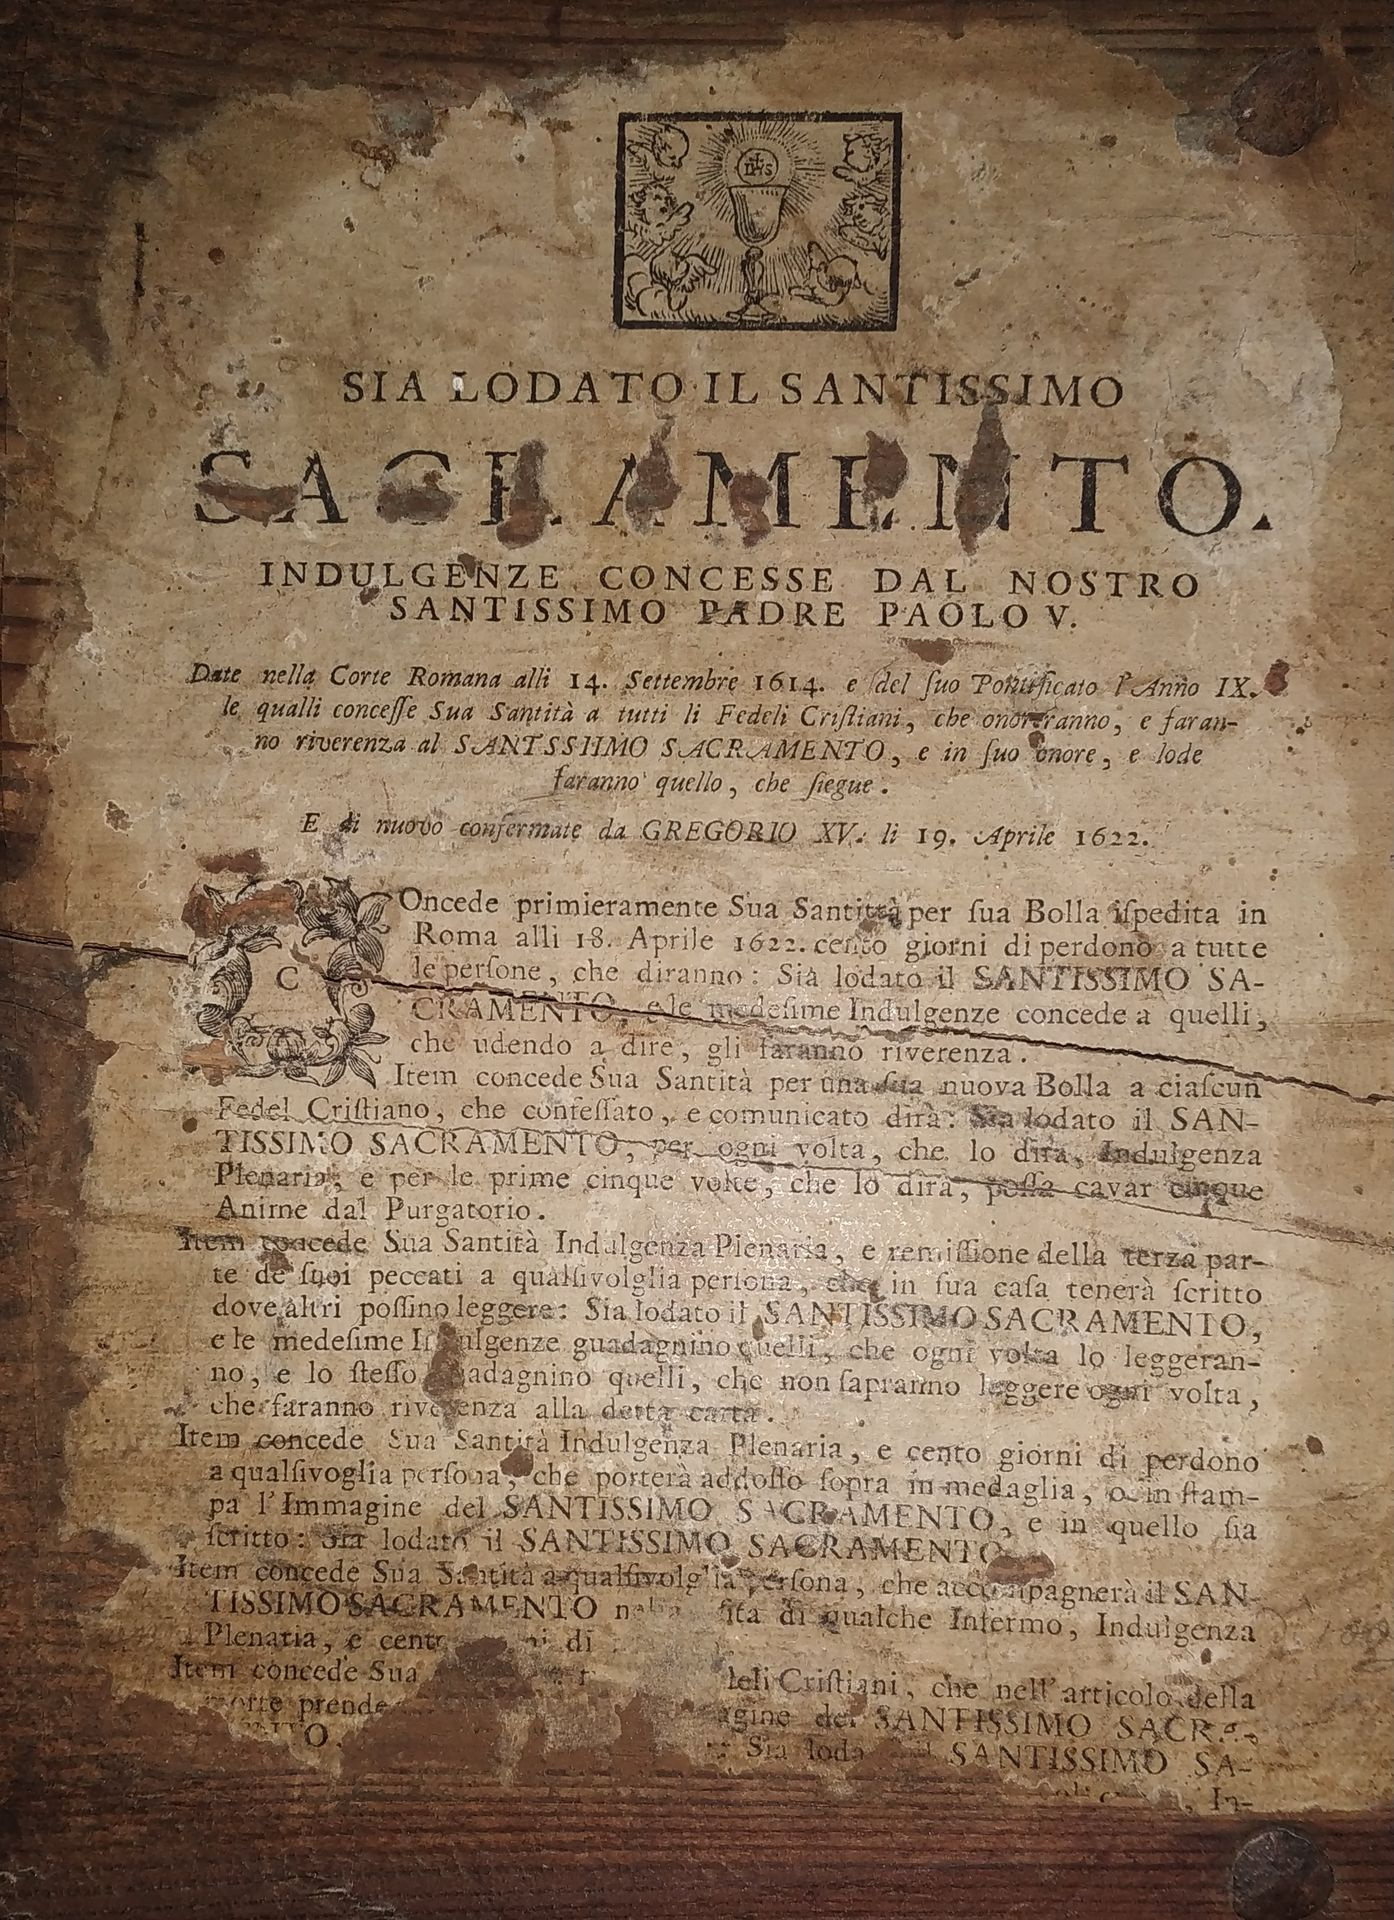 IHS
SIA LODATO IL SANTISSIMO
SACRAMENTO.
INDULGENZE CONCESSE DAL NOSTRO
SANTISSIMO PADRE PAOLO V.
Date nella Corte Romana alli 14. Settembre 1614. e del ſuo Pontificato l'Anno IX.
le qualli conceſſe Sua Santità a tutti li Fedeli Criſtiani, che onoreranno, e faran-
no riverenza al SANTSSIIMO SACRAMENTO, e in ſuo onore, e lode
faranno quello, che ſiegue.
E di nuovo confermate da GREGORIO XV. li 19. Aprile 1622.
COncede primieramente Sua Santittà per ſua Bolla iſpedita in
Roma alli 18. Aprile 1622. cento giorni di perdono a tutte
le perſone, che diranno: Sia lodato il SANTISSIMO SA-
CRAMENTO, e le medeſime Indulgenze concede a quelli,
che udendo a dire, gli faranno riverenza.
Item concede Sua Santità per una ſua nuova Bolla a ciaſcun
Fedel Criſtiano, che confeſſato, e comunicato dirà: Sia lodato il SAN-
TISSIMO SACRAMENTO, per ogni volta, che lo dirà, Indulgenza
Plenaria, e per le prime cinque volte, che lo dirà, poſſa cavar cinque
Anime dal Purgatorio.
Item concede Sua Santità Indulgenza Plenaria, e remiſſione della terza par-
te de ſuoi peccati a qualſivolglia perſona, che in ſua caſa tenerà ſcritto
dove altri poſſino leggere: Sia lodato il SANTISSIMO SACRAMENTO,
e le medeſime Indulgenze guadagnino quelli, che ogni volta lo leggeran-
no, e lo ſteſſo guadagnino quelli, che non ſapranno leggere ogni volta,
che faranno riverenza alla detta carta.
Item concede Sua Santità Indulgenza Plenaria, e cento giorni di perdono
a qualſivoglia perſona, che porterà addoſſo ſopra in medaglia, o in ſtam-
pa l'Immagine del SANTISSIMO SACRAMENTO, e in quello ſia
ſcritto: Sia lodato il SANTISSIMO SACRAMENTO
Item concede Sua Santità a qualſivolglia perſona, che accompagnerà il SAN-
TISSIMO SACRAMENTO di qualche Infermo, Indulgenza
Plenaria, e di
Item concede Sua Criſtiani, che nell'articolo della
morte del SANTISSIMO SACRA-
Sia SANTISSIMO SA-
In-